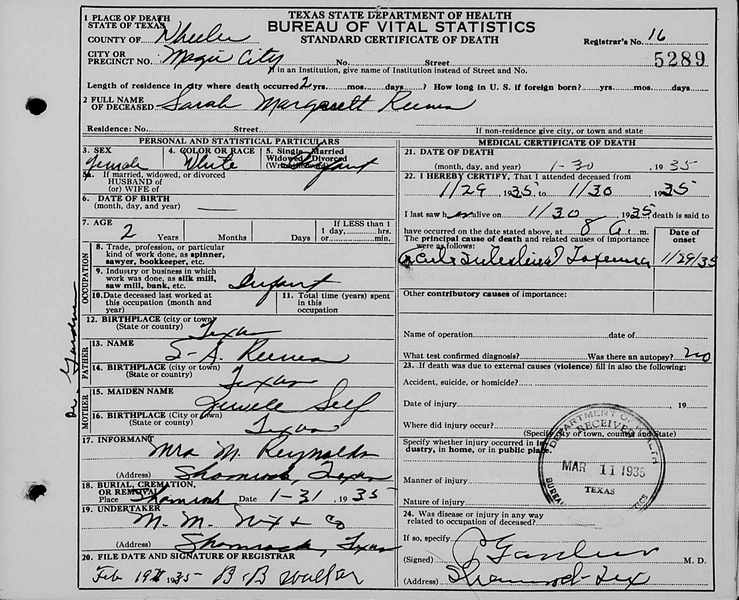 TEXAS STATE DEPARTMENT OF HEALTH
BUREAU OF VITAL STATISTICS
STANDARD CERTIFICATE OF DEATH
1 PLACE OF DEATH
STATE OF TEXAS
COUNTY OF Wheeler
Registrar's No. 16
CITY OR
PRECINCT NO. Magic City No. Street
5289
If in an Institution, give name of Institution instead of Street and No.
Length of residence in city where death occurred 2 yrs. mos. days? How long in U. S. if foreign born? yrs. mos. days
2 FULL NAME
OF DECEASED Sarah Margarett Reeves
Residence: No. Street
If non-residence give city, or town and state
PERSONAL AND STATISTICAL PARTICULARS
3. SEX
Female
4. COLOR OR RACE
White
5. Single, Married
Widowed, Divorced
Infant
5A. If married, widowed, or divorced
HUSBAND OF
(or) WIFE OF
6. DATE OF BIRTH
(month, day, and year) —
7. AGE
2 Years Months Days
If LESS than 1
1 day, hrs.
or min.
OCCUPATION
8. Trade, profession, or particular
kind of work done, as spinner,
sawyer, bookkeeper, etc.
9. Industry or business in which
work was done, as silk mill,
saw mill, bank, etc. Infant
10. Date deceased last worked at
this occupation (month and
year)
11. Total time (years) spent
in this
occupation
12. BIRTHPLACE (city or town)
(State or country) Texas
FATHER
13. NAME S-A. Reeves
14. BIRTHPLACE (city or town)
(State or country) Texas
MOTHER
15. MAIDEN NAME Jewele Self
16. BIRTHPLACE (City or town)
(State or country) Texas
17. INFORMANT Mrs M. Reynolds
(Address) Shamrock, Texas
18. BURIAL, CREMATION,
OR REMOVAL
Place Shamrock Date 1-31, 1935
19. UNDERTAKER
M. M. Nix & Co
(Address) Shamrock, Texas
20. FILE DATE AND SIGNATURE OF REGISTRAR
Feb 19 1935 B-B Walker
Dr. Gardner
MEDICAL CERTIFICATE OF DEATH
21. DATE OF DEATH
(month, day, and year) 1-30 1935
22. I HEREBY CERTIFY, That I attended deceased from
1/29 1935 to 1/30 1935
I last saw h er alive on 1/30 1935, death is said to
have occurred on the date stated above, at 8 A. m.
The principal cause of death and related causes of importance
were as follows:
Date of
onset
Acute Intestinal Toxemia 1/29/35
Other contributory causes of importance:
Name of operation date of
What test confirmed diagnosis? Was there an autopsy? no
23. If death was due to external causes (violence) fill in also the following:
Accident, suicide, or homicide?
Date of injury 19
Where did injury occur?
(Specify city or town, county and State)
Specify whether injury occurred in industry, in home, or in public place.
Manner of injury
Nature of injury
DEPARTMENT OF HEALTH
RECEIVED
MAR 11 1935
TEXAS
24. Was disease or injury in any way
related to occupation of deceased?
If so, specify
(Signed) Gardner M. D.
(Address) Shamrock-Tex